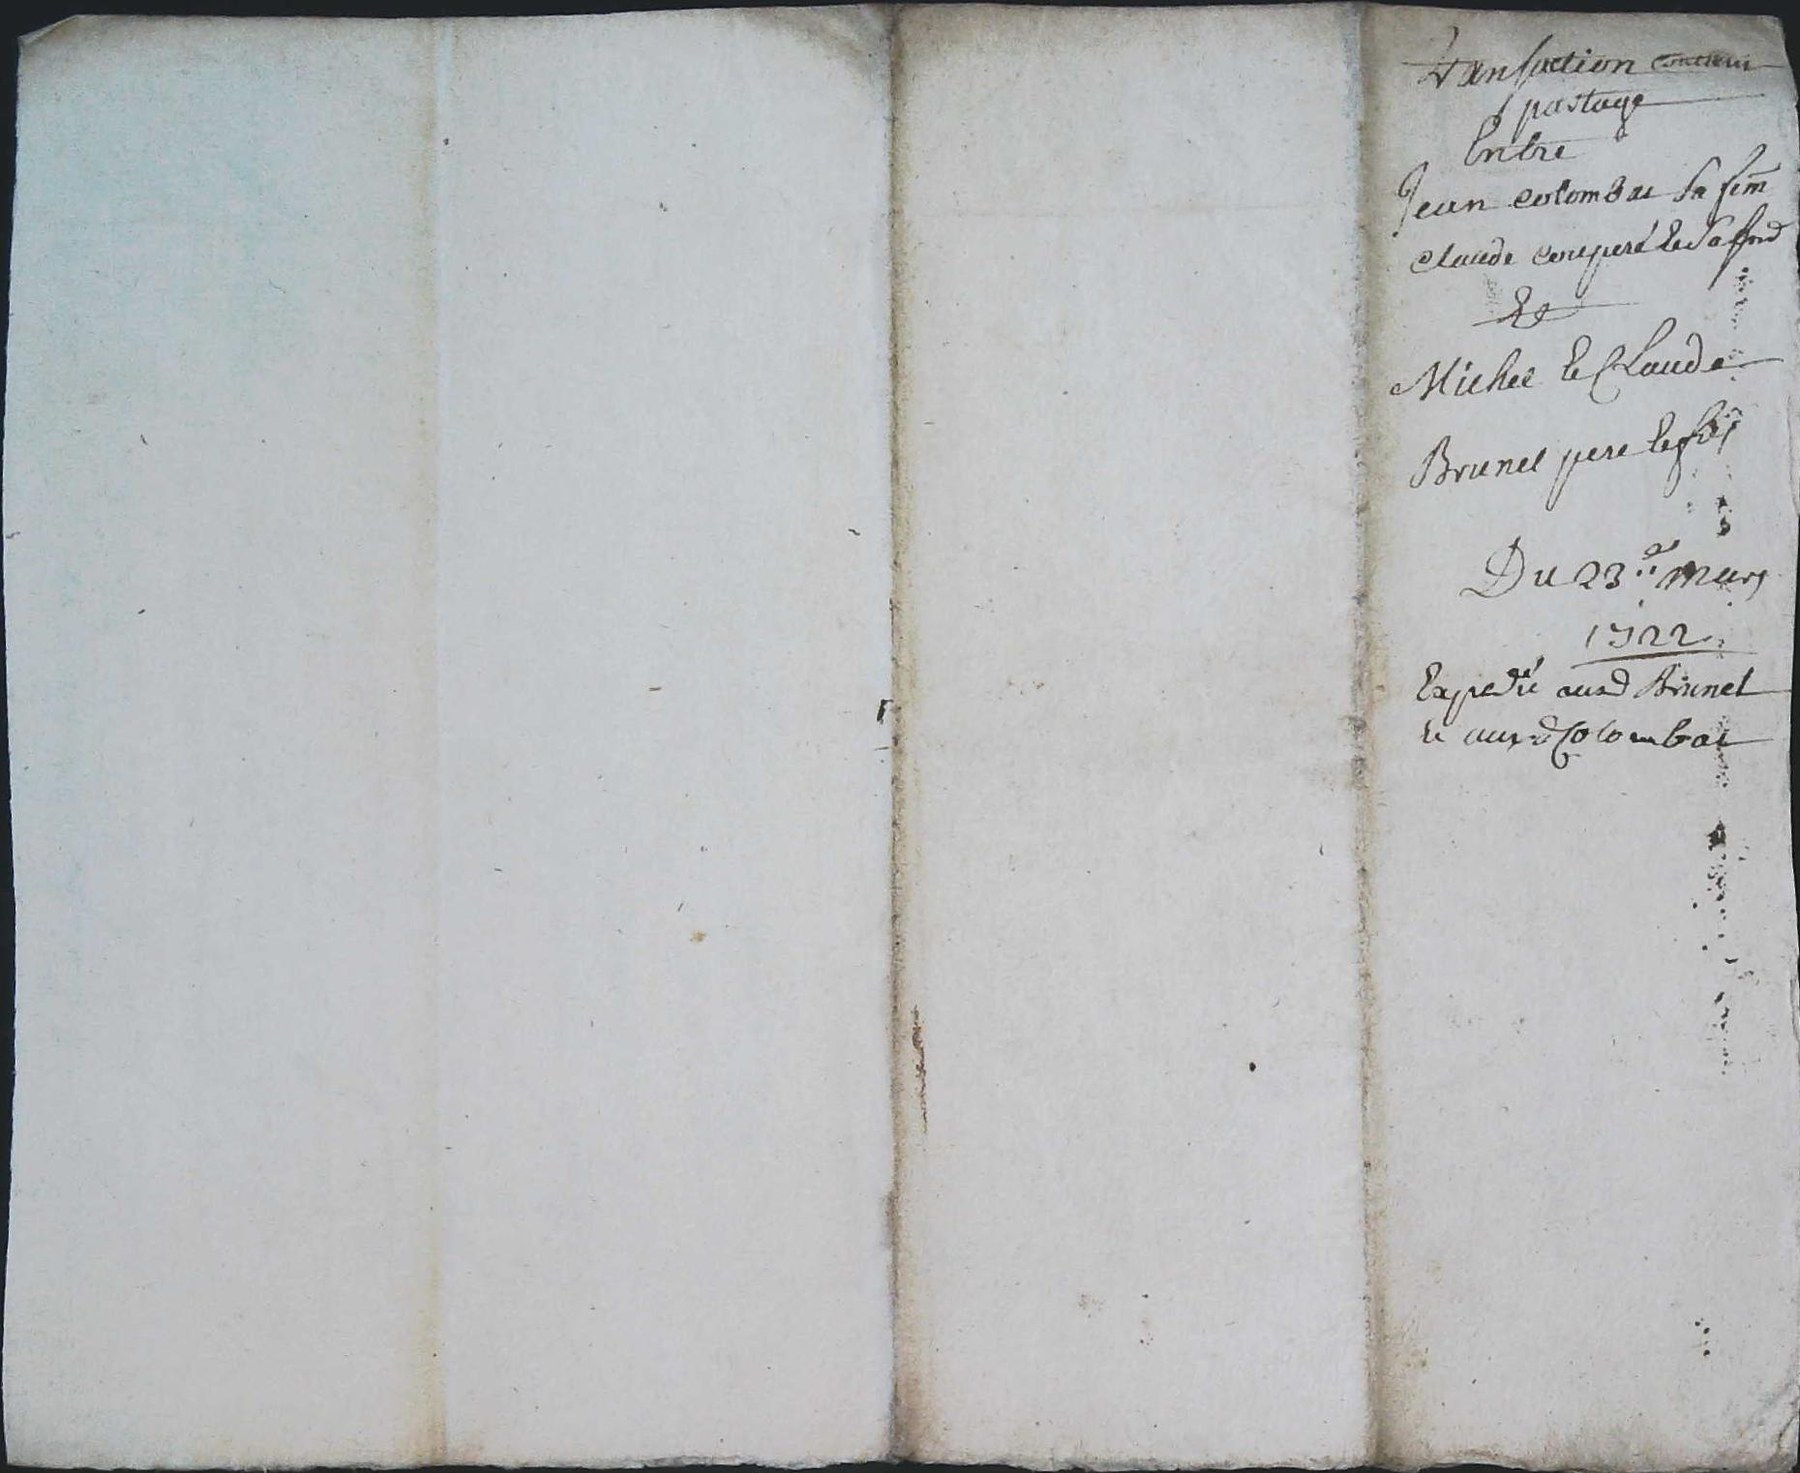 transaction
partage
Entre
Jean Colombat Sa fem
claude couperé et Sa
Et
Michel et Claude
Brunel pere et fils
Du 23e mars
1722
Expedié aud Brunel
et aux d Colombat